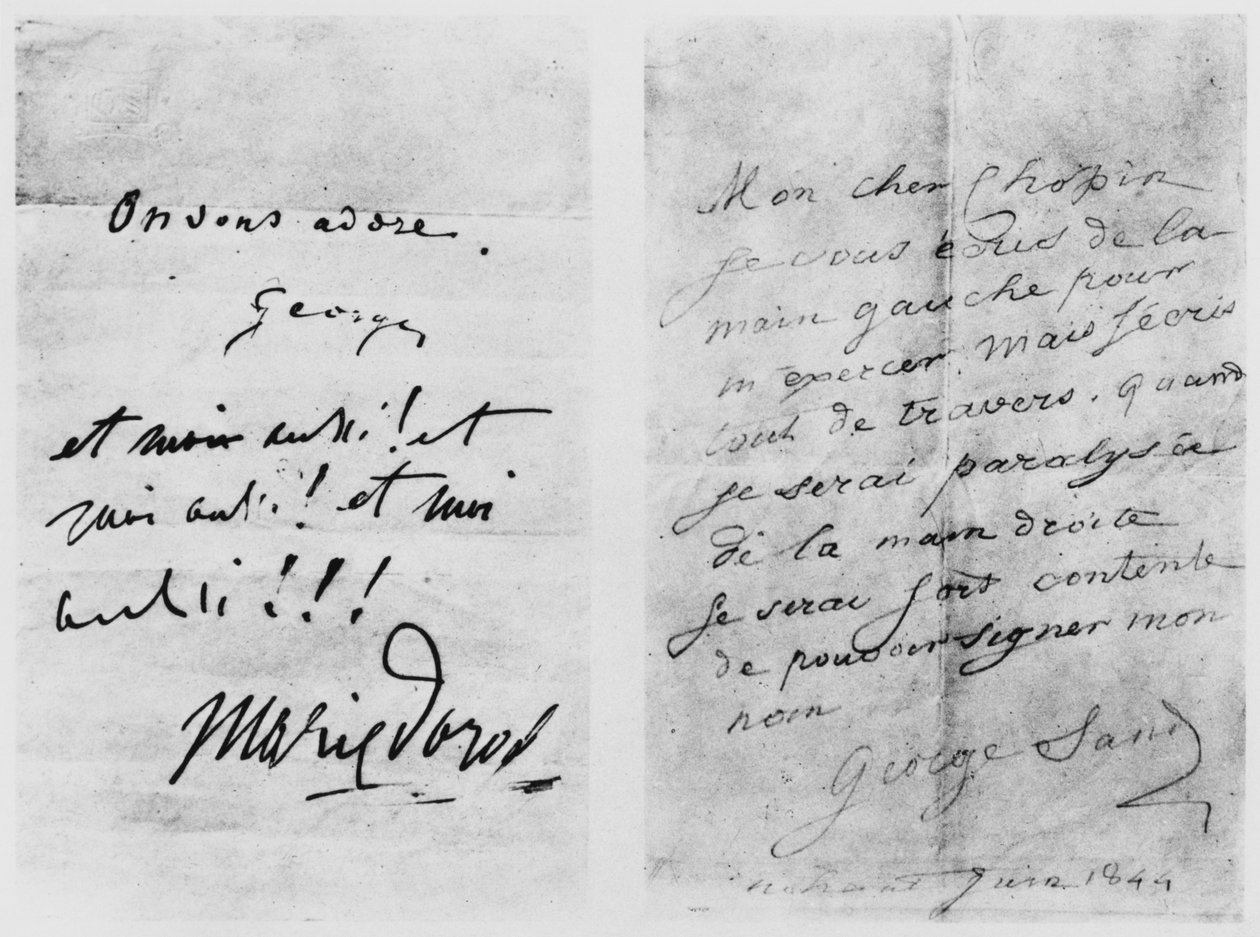 On vous adore.
George
et moi aussi! et
moi aussi! et moi
aussi!!!
Marie Dorval
Mon cher Chopin
je vous écris de la
main gauche pour
m'exercer. Mais j'écris
tout de travers. quand
je serai paralysée
de la main droite
je serai fort contente
de pouvoir signer mon
nom
George Sand
nohant Juin 1844